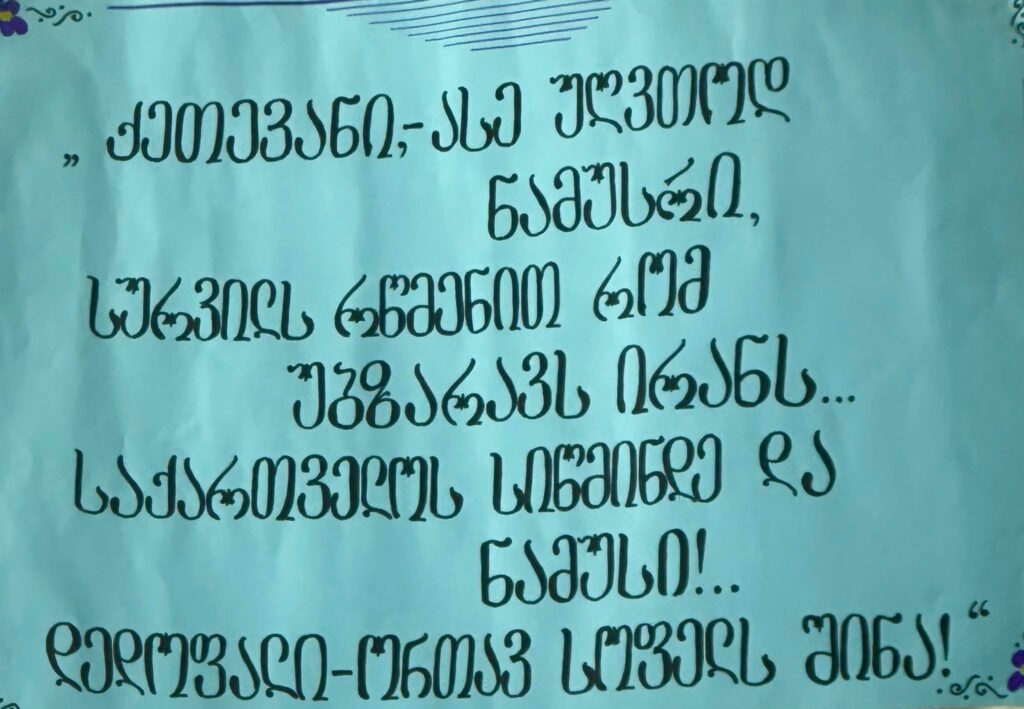 „ ქეთევანი,-ასე უღვთოდ
ნამუსრი,
სურვილს რწმენით რომ
უბზარავს ირანს...
საქართველოს სიწმინდე და
ნამუსი!..
დედოფალი-ორთავ სოფელს შინა!“